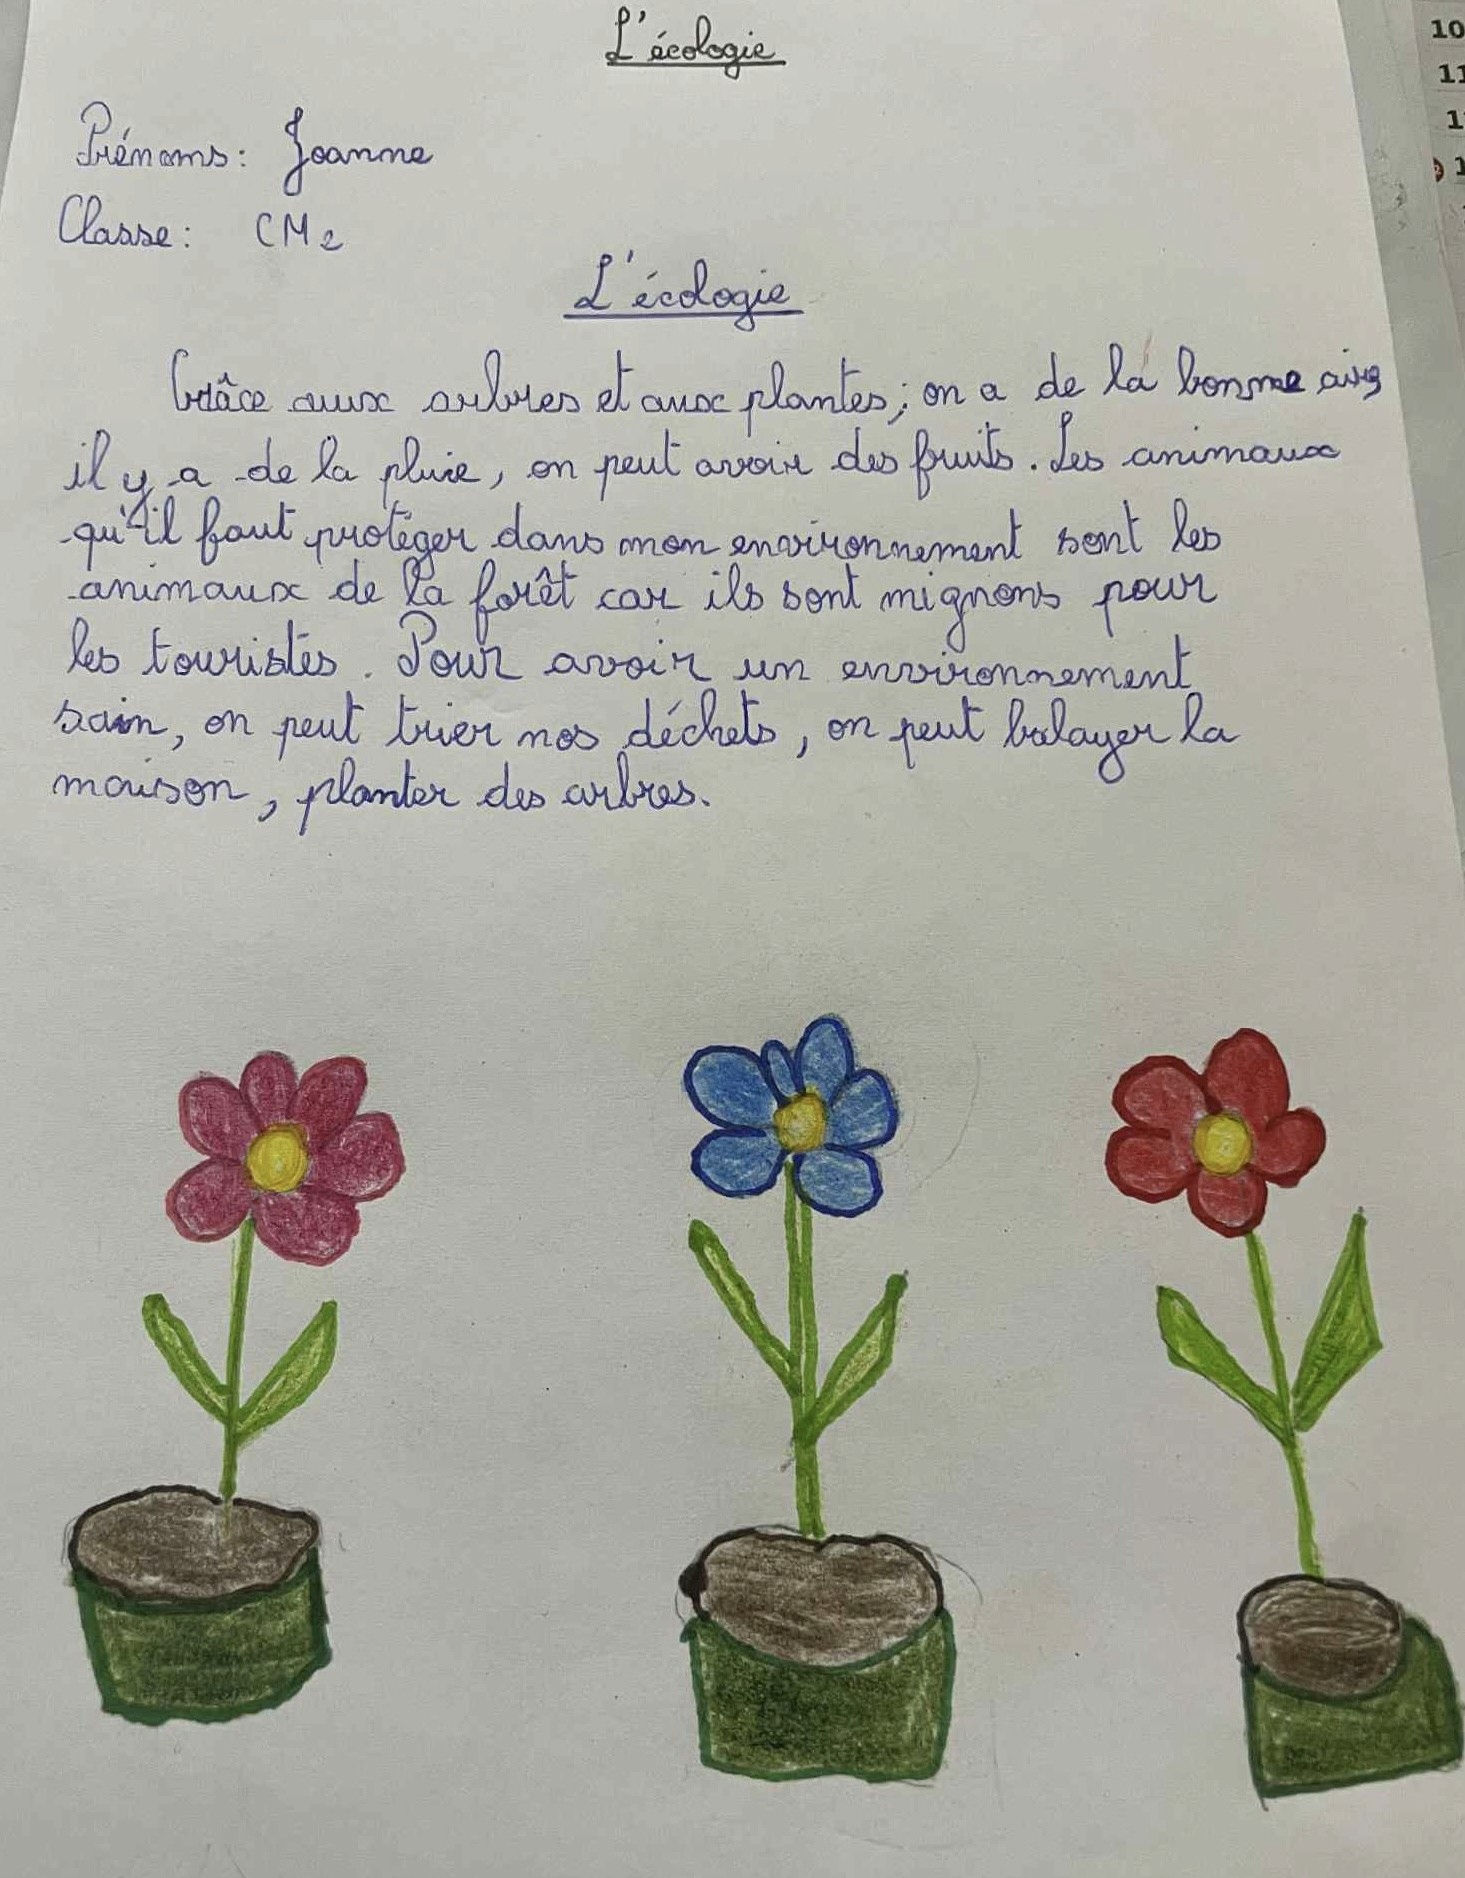 L'écologie
Prénoms: Joanne
Classe: CM2
L'écologie
Grâce aux arbres et aux plantes; on a de la bonne air,
il y a de la pluie, on peut avoir des fruits. Les animaux
qu'il faut protéger dans mon environnement sont les
animaux de la forêt car ils sont mignons pour
les touristes. Pour avoir un environnement
sain, on peut trier nos déchets, on peut balayer la
maison, planter des arbres.
10
11